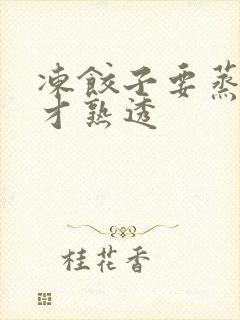 凍餃子要蒸
才熟透
桂花香